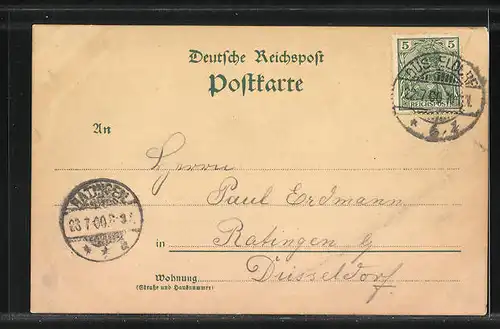 Deutsche Reichspost
Postkarte
5 5
REICHSPOST
DÜSSELDORF
* 6 1
An
Herrn
Paul Erdmann
RATINGEN
23 7 00
* * *
in Ratingen b/
Düsseldorf.
Wohnung
(Straße und Hausnummer)